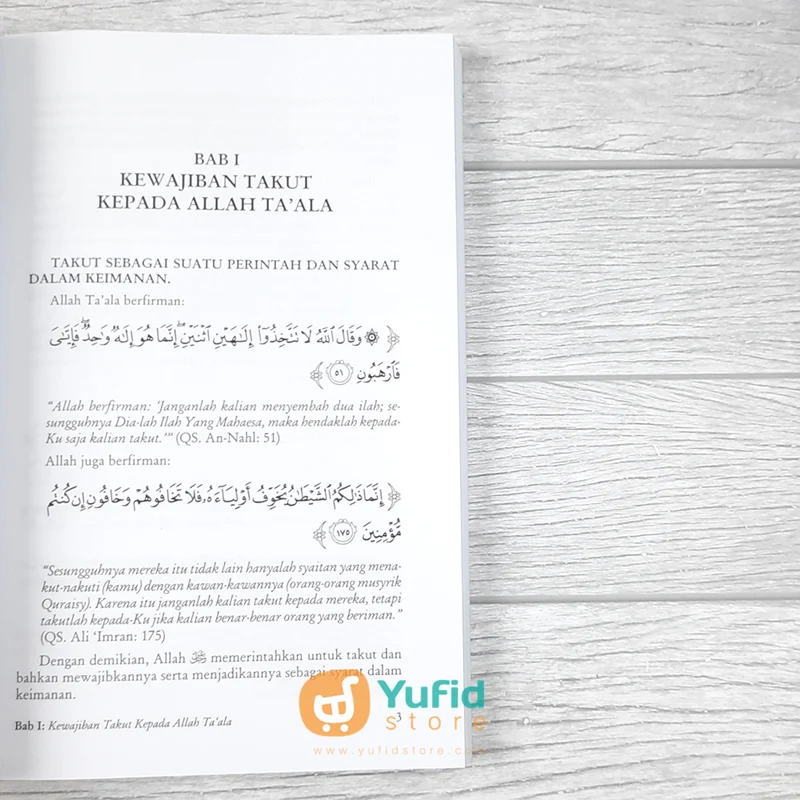 BAB I
KEWAJIBAN TAKUT
KEPADA ALLAH TA'ALA
TAKUT SEBAGAI SUATU PERINTAH DAN SYARAT
DALAM KEIMANAN.
Allah Ta'ala berfirman:
﴿ ۞ وَقَالَ ٱللَّهُ لَا تَتَّخِذُوٓا۟ إِلَٰهَيْنِ ٱثْنَيْنِ ۖ إِنَّمَا هُوَ إِلَٰهٌ وَٰحِدٌ ۖ فَإِيَّٰىَ
فَٱرْهَبُونِ ٥١ ﴾
"Allah berfirman: 'Janganlah kalian menyembah dua ilah; se-
sungguhnya Dia-lah Ilah Yang Mahaesa, maka hendaklah kepada-
Ku saja kalian takut.'" (QS. An-Nahl: 51)
Allah juga berfirman:
﴿ إِنَّمَا ذَٰلِكُمُ ٱلشَّيْطَٰنُ يُخَوِّفُ أَوْلِيَآءَهُۥ فَلَا تَخَافُوهُمْ وَخَافُونِ إِن كُنتُم
مُّؤْمِنِينَ ١٧٥ ﴾
"Sesungguhnya mereka itu tidak lain hanyalah syaitan yang mena-
kut-nakuti (kamu) dengan kawan-kawannya (orang-orang musyrik
Quraisy). Karena itu janganlah kalian takut kepada mereka, tetapi
takutlah kepada-Ku jika kalian benar-benar orang yang beriman."
(QS. Ali 'Imran: 175)
Dengan demikian, Allah ﷻ memerintahkan untuk takut dan
bahkan mewajibkannya serta menjadikannya sebagai syarat dalam
keimanan.
Bab I: Kewajiban Takut Kepada Allah Ta'ala 3
Yufid
store
www.yufidstore.com